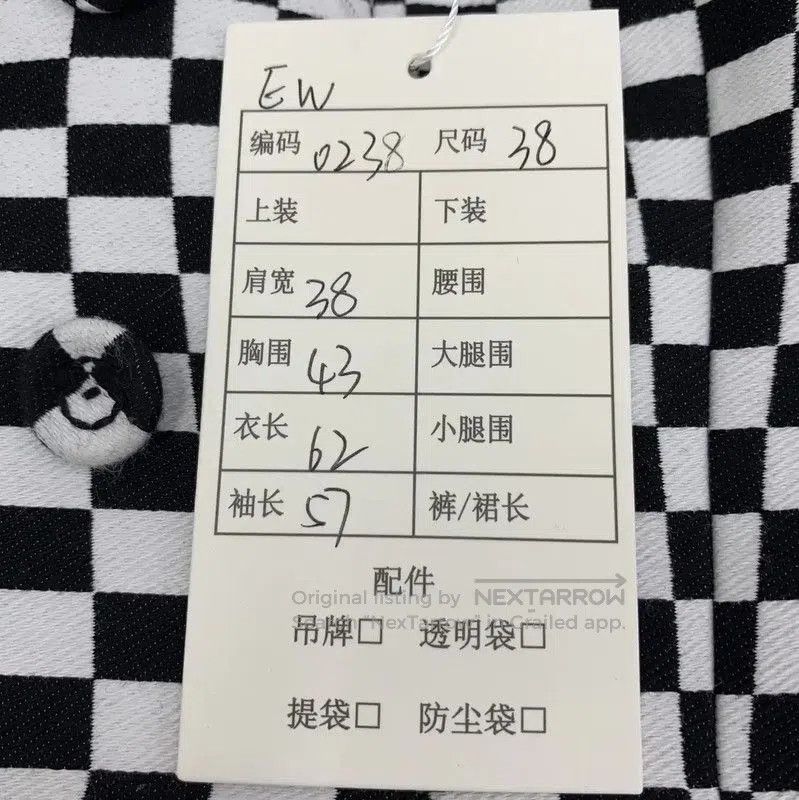 EW
编码 0238 尺码 38
上装 下装
肩宽 38 腰围
胸围 43 大腿围
衣长 62 小腿围
袖长 57 裤/裙长
配件
Original listing by NEXTARROW
Search "NexTarrow" in Grailed app.
吊牌□ 透明袋□
提袋□ 防尘袋□